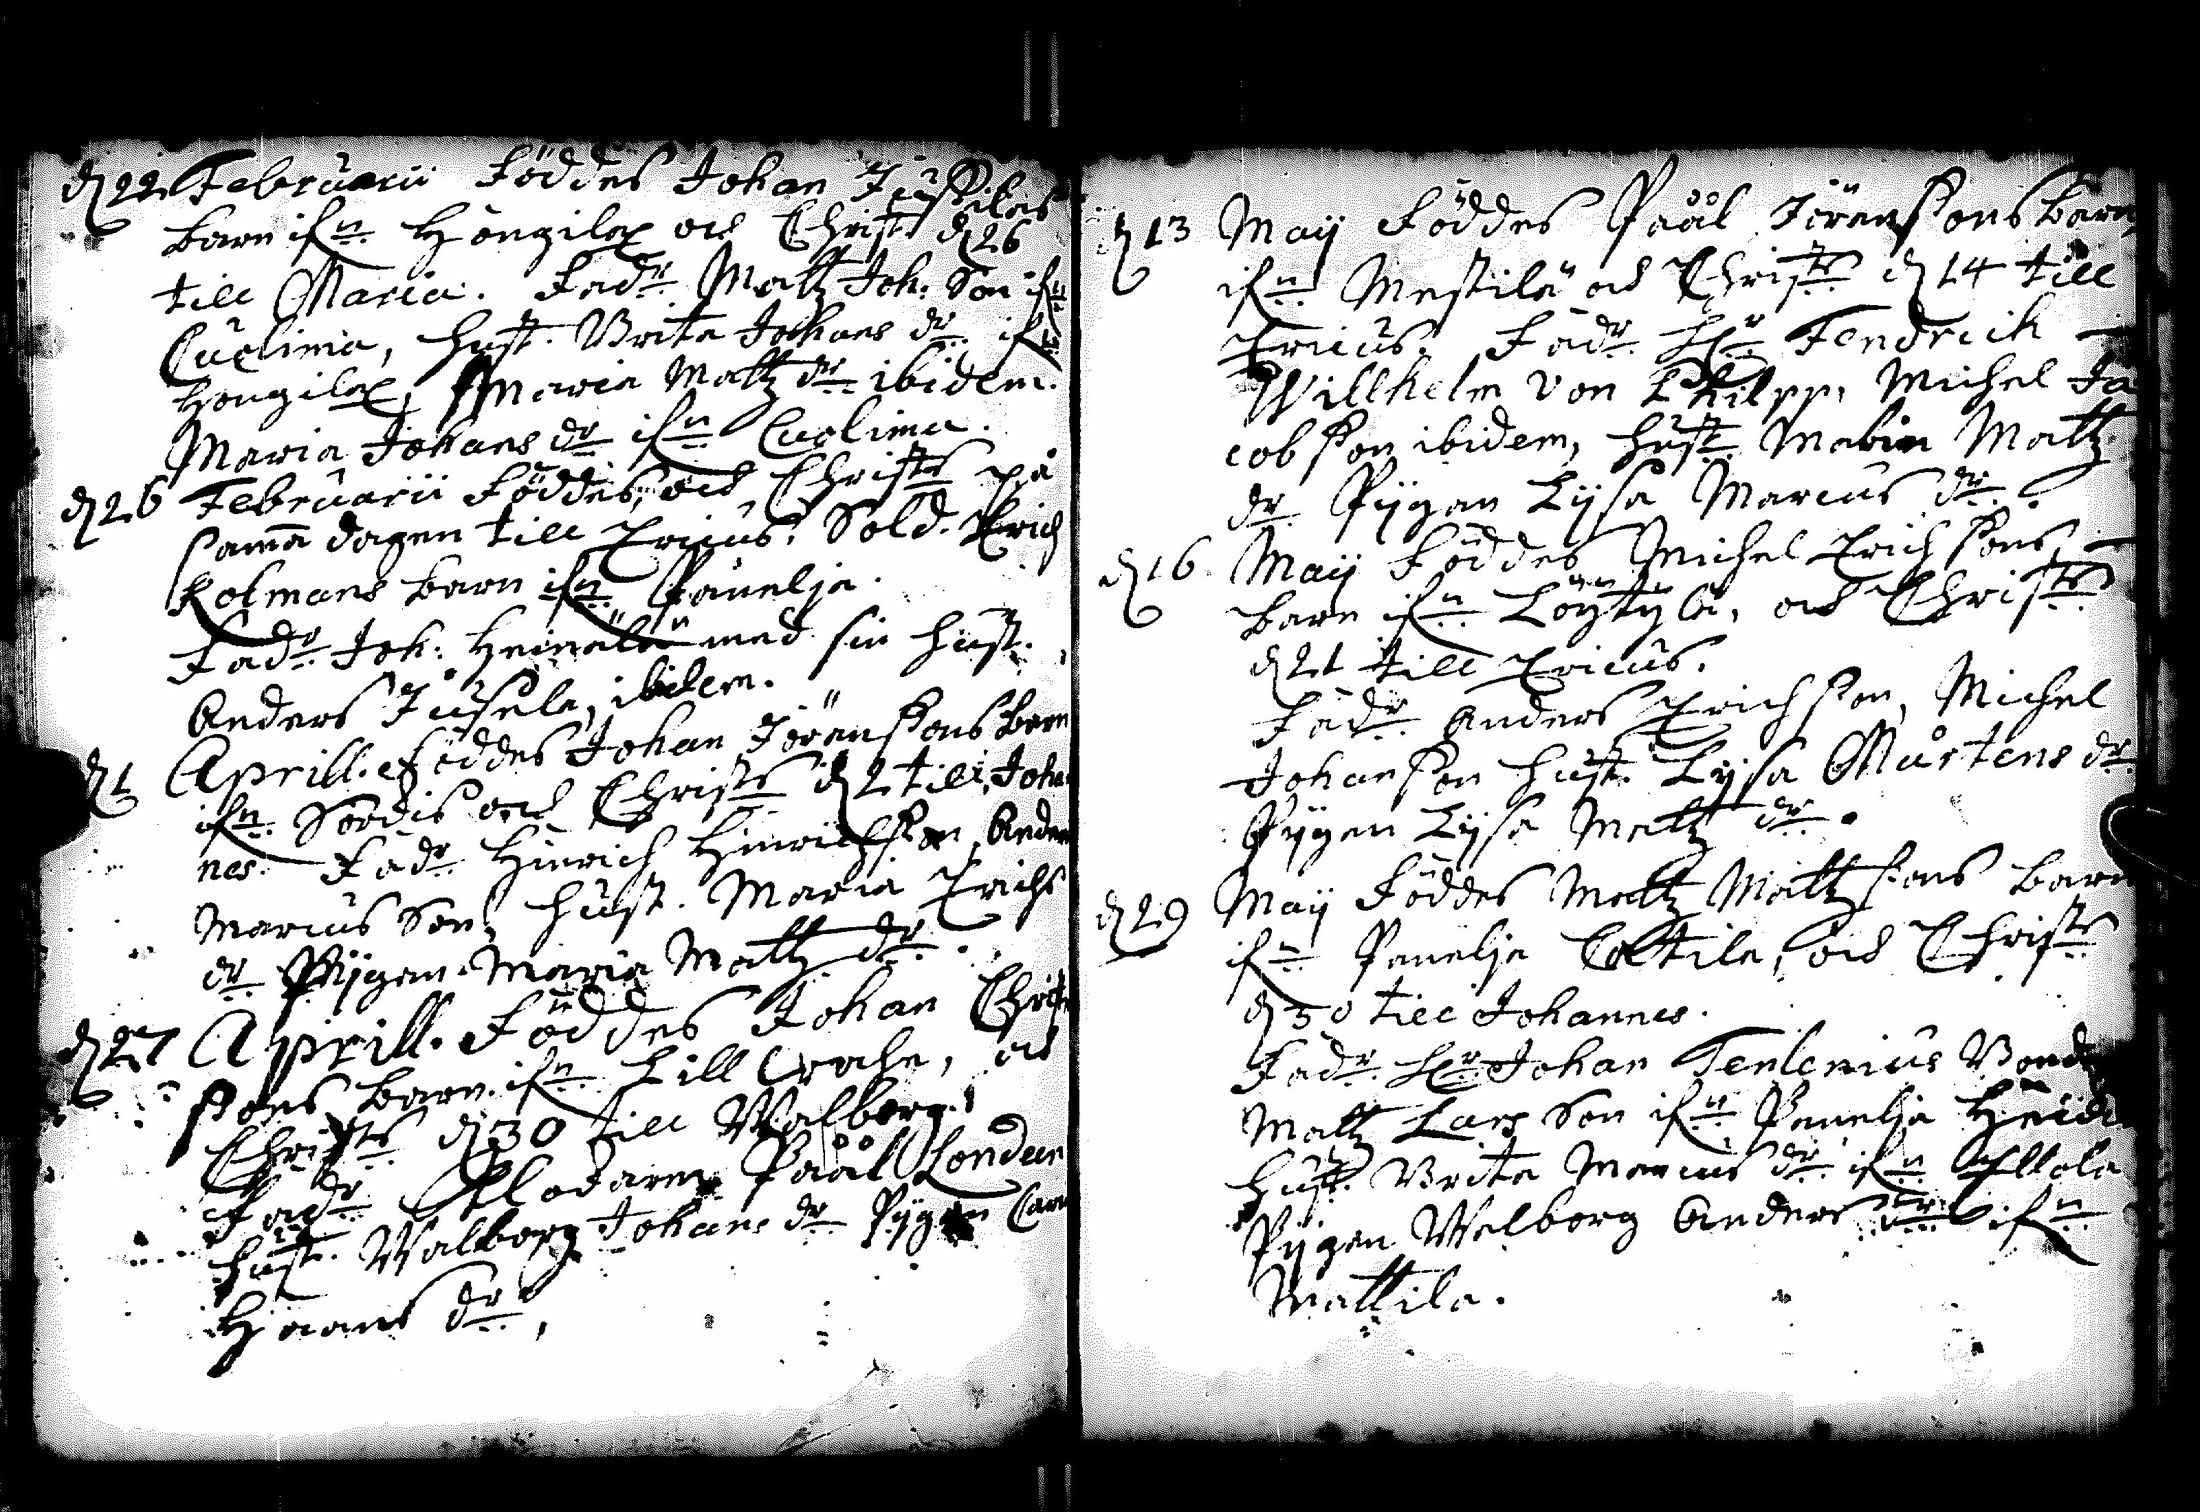 d 22 Februarii Föddes Johan Jussilas
barn ifn Hongilax och Christ. d 26
till Maria. Fadr Matz Joh: Son ifn
Cuolima, hust. Brita Johans dr ifn
Hongilax, Maria Matz dr ibidem.
Maria Johans dr ifn Cuolima.
d 26 Februarii Föddes, och Christs på
samã dagen till Ericus. Sold. Erich
Kolmans barn ifn Panelja.
Fadr Joh: Heinälä med sin hust.
Anders Jusela, ibidem.
d 1 Aprill. Föddes Johan Jöransons barn
ifn Sordis och Christs d 2 till Johan
nes. Fadr Hinrich Hinrichson, Anders
Marcus Son, hust. Maria Erichs
dr Pygan Maria Matz dr.
d 27 Aprill. Föddes Johan Christ
sons barn ifn Lill, och
Christs d 30 till Walborg.
Fadr Påål London
hust. Walborg Johans dr Pygan Carin
Haans dr,
d 13 May Föddes Påål Jöransons barn
ifn Mestilä och Christs d 14 till
Ericus. Fadr Hr Fendrich
Willhelm von Philpp, Michel Ja
cobson ibidem, hust. Malin Matz
dr Pygan Lysa Marcus dr.
d 16 May Föddes Michel Erichsons
barn ifn Löytylä, och Christs
d 21 till Ericus.
Fadr Anders Erichson, Michel
Johanson hust. Lysa Mårtens dr
Pygan Lysa Matz dr.
d 29 May Föddes Matz Matzsons barn
ifn Panelja Coltila, och Christs
d 30 till Johannes.
Fadr Hr Johan Tenlenius
Matz Lars Son ifn Panelja
hust. Brita Marcus dr ifn
Pygan Walborg Anders dr ifn
Mattila.